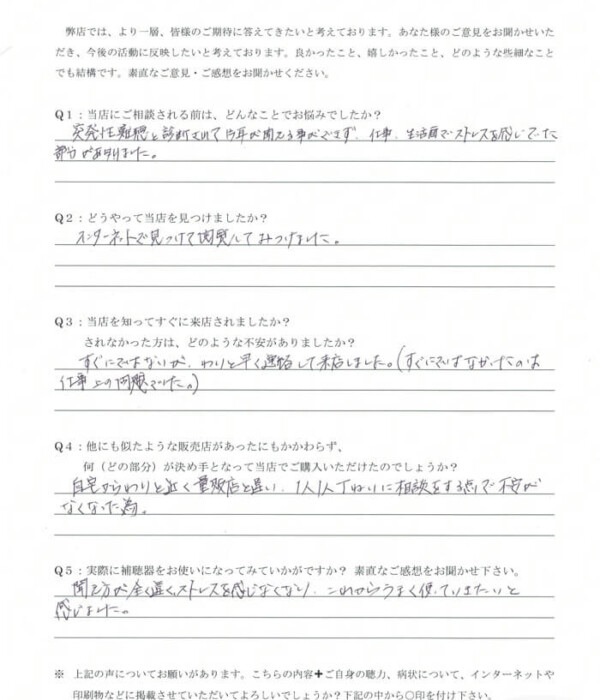 弊店では、より一層、皆様のご期待に答えてきたいと考えております。あなた様のご意見をお聞かせいた
だき、今後の活動に反映したいと考えております。良かったこと、嬉しかったこと、どのような些細なこと
でも結構です。素直なご意見・ご感想をお聞かせください。
Q1：当店にご相談される前は、どんなことでお悩みでしたか？
突発性難聴と診断されて 耳が聞える事ができず、仕事、生活面でストレスを感じていた
部分がありました。
Q2：どうやって当店を見つけましたか？
インターネットで見つけて閲覧してみつけました。
Q3：当店を知ってすぐに来店されましたか？
されなかった方は、どのような不安がありましたか？
すぐにではないが、わりと早く連絡して来店しました。(すぐにではなかったのは
仕事上の問題でした。)
Q4：他にも似たような販売店があったにもかかわらず、
何（どの部分）が決め手となって当店でご購入いただけたのでしょうか？
自宅からわりと近く量販店と違い、1人1人ていねいに相談をする点で不安が
なくなった為。
Q5：実際に補聴器をお使いになってみていかがですか？ 素直なご感想をお聞かせ下さい。
聞こえ方が全く違く、ストレスを感じなくなり、これからうまく使っていきたいと
感じました。
※ 上記の声についてお願いがあります。こちらの内容＋ご自身の聴力、病状について、インターネットや
印刷物などに掲載させていただいてよろしいでしょうか？下記の中から○印を付け下さい。